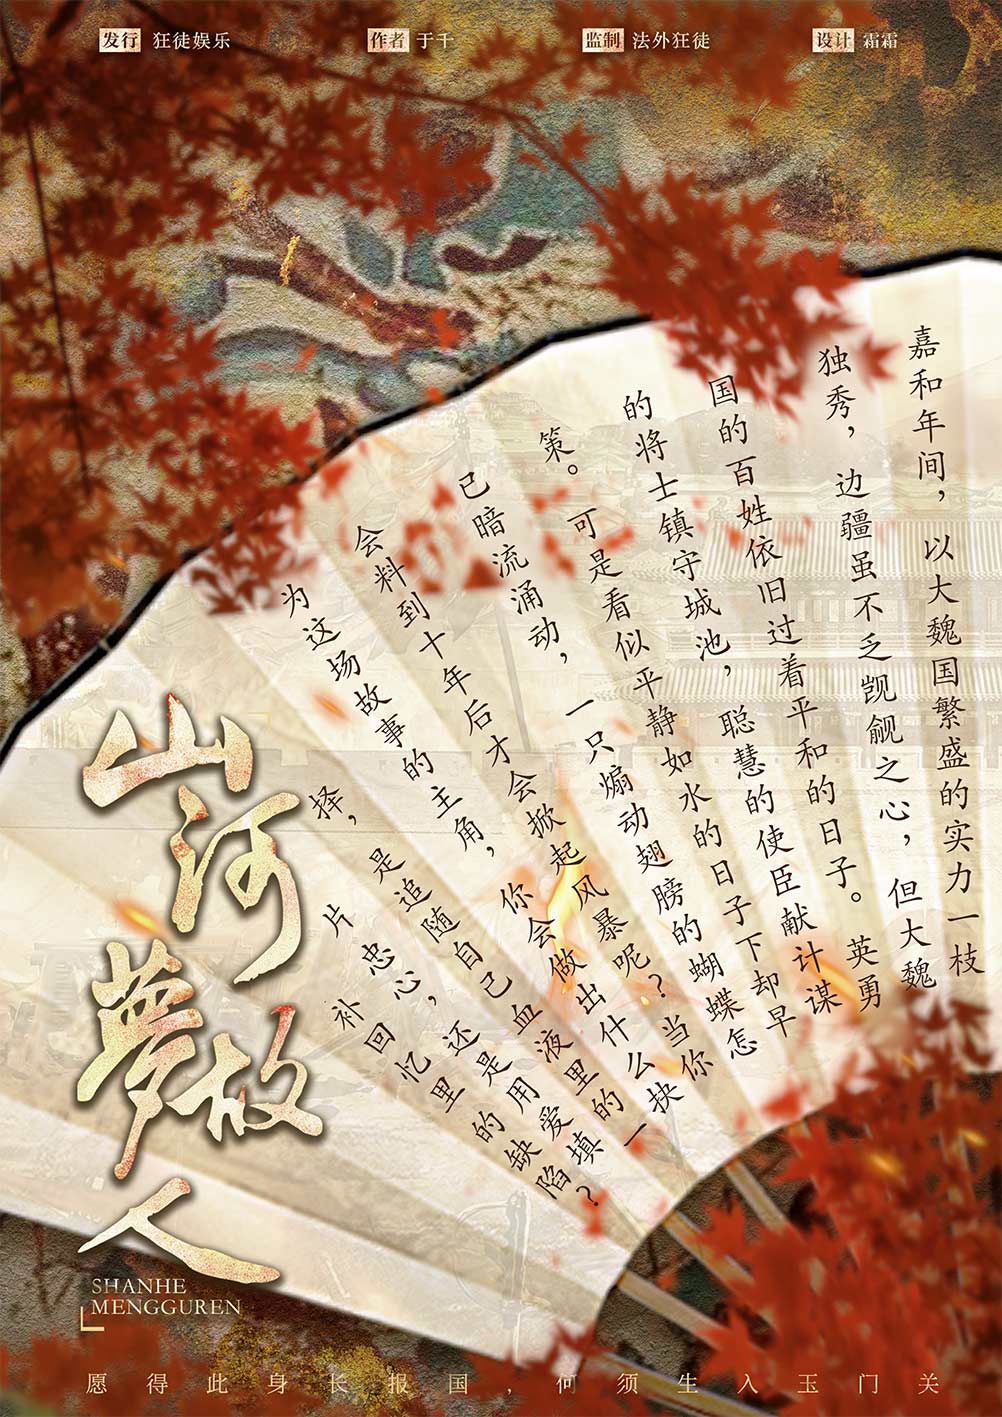 发行 狂徒娱乐
作者 于千
监制 法外狂徒
设计 霜霜
嘉和年间，以大魏国繁盛的实力一枝
独秀，边疆虽不乏觊觎之心，但大魏
国的百姓依旧过着平和的日子。英勇
的将士镇守城池，聪慧的使臣献计谋
策。可是看似平静如水的日子下却早
已暗流涌动，一只煽动翅膀的蝴蝶怎
会料到十年后才会掀起风暴呢？当你
为这场故事的主角，你会做出什么抉
择，是追随自己血液里的一
片忠心，还是用爱填
补回忆里的缺陷？
山河梦故人
SHANHE
MENGGUREN
愿得此身长报国，何须生入玉门关